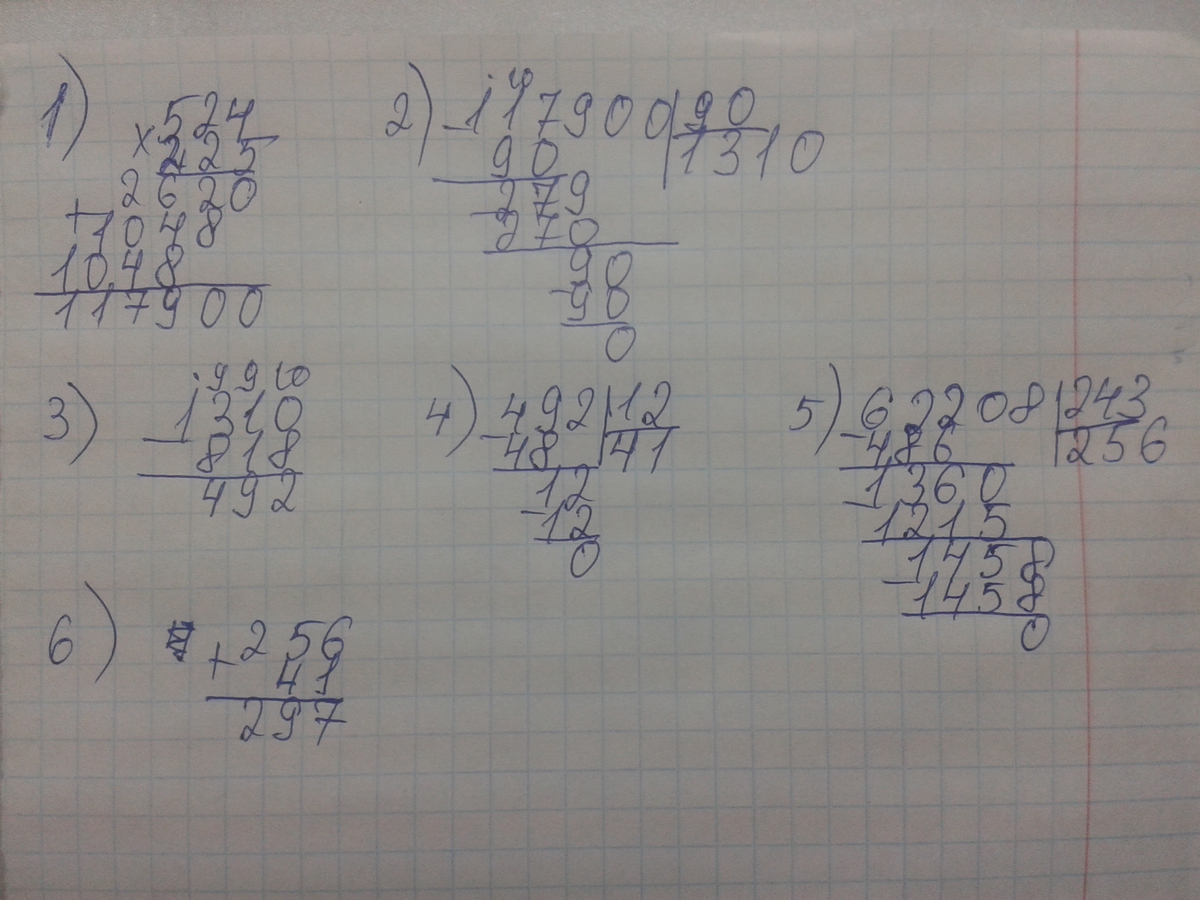 1)
×524
225
2620
+1048
1048
117900
2) -117900|90
90 1310
279
-270
90
-90
0
3)
9910
1310
- 818
492
4) -492|12
48 |41
12
-12
0
5) -62208|243
486 |256
-1360
1215
-1458
1458
0
6)
+256
41
297